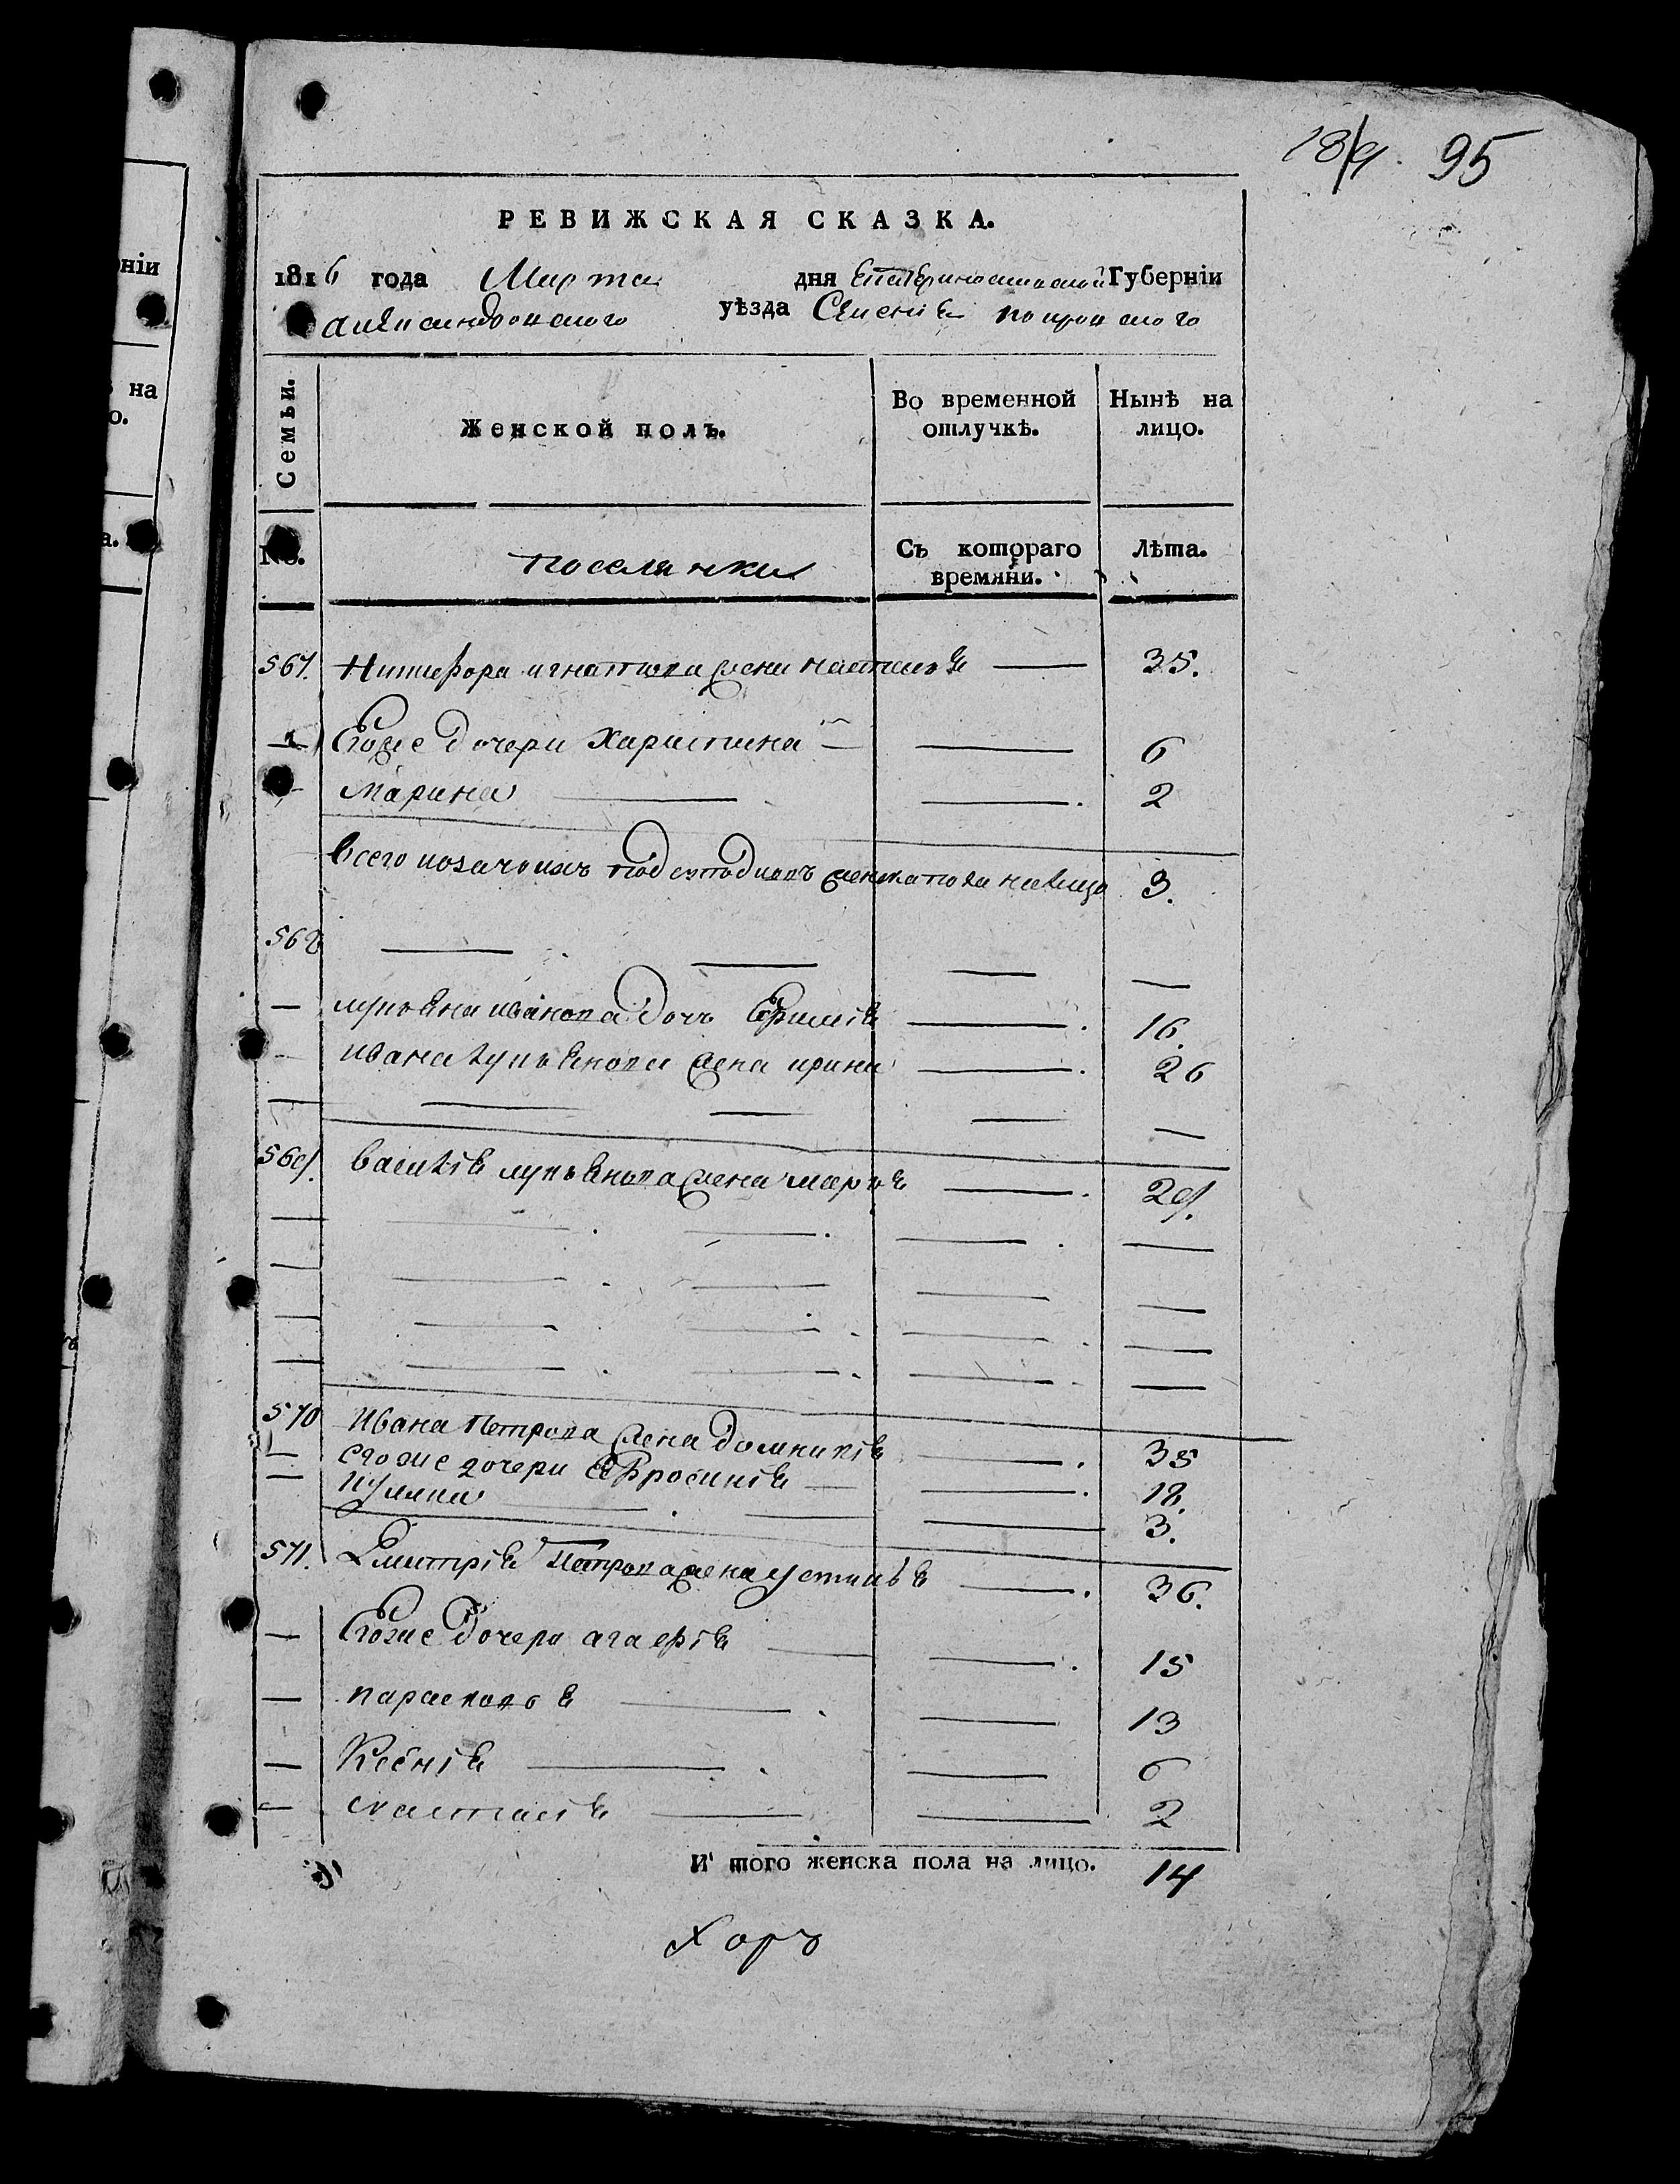 95
РЕВИЖСКАЯ СКАЗКА.
1816 года Марта дня Екатеринославской Губерніи
Александровского уѣзда Селенія покровского
Семьи.
Женской полъ.
Во временной отлучкѣ.
Нынѣ на лицо.
№.
поселянки
Съ котораго времяни.
Лѣта.
567. Никифора игнатова жена настасья 35.
Егоже дочери Харистина 6
Марина 2
всего козачоихъ женска пола налицо 3.
568
лукьяна иванова дочь Ефимія 16.
ивана лукьянова жена ирина 26
569. василія лукьянова жена марья 29.
570 ивана петрова жена домникія 35
егоже дочери Ефросинія 18.
3.
571. Дмитрія петрова жена устинья 36.
Егоже дочери агафія 15
парасковья 13
Ксенія 6
настасія 2
И того женска пола на лицо. 14
Хоръ
ніи
на
о.
а.